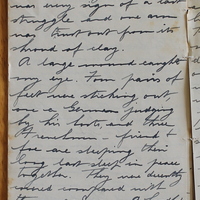 every sign of a last
struggle and one arm
was thrust out from its
shroud of clay.
A large mound caught
my eye. Four pairs of
feet were sticking out
one a German judging
by his boots and three
Frenchmen - friend &
foe are sleeping their
long last sleep in peace
together. They were decently
covered compared with